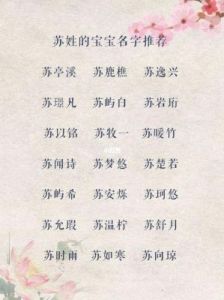 苏姓的宝宝名字推荐
苏亭溪 苏鹿樵 苏逸兴
苏璟凡 苏屿白 苏岩珩
苏以铭 苏牧一 苏暖竹
苏闻诗 苏梦悠 苏楚若
苏屿希 苏安烁 苏珂悠
苏允瑕 苏温柠 苏舒月
苏时雨 苏如寒 苏向琼